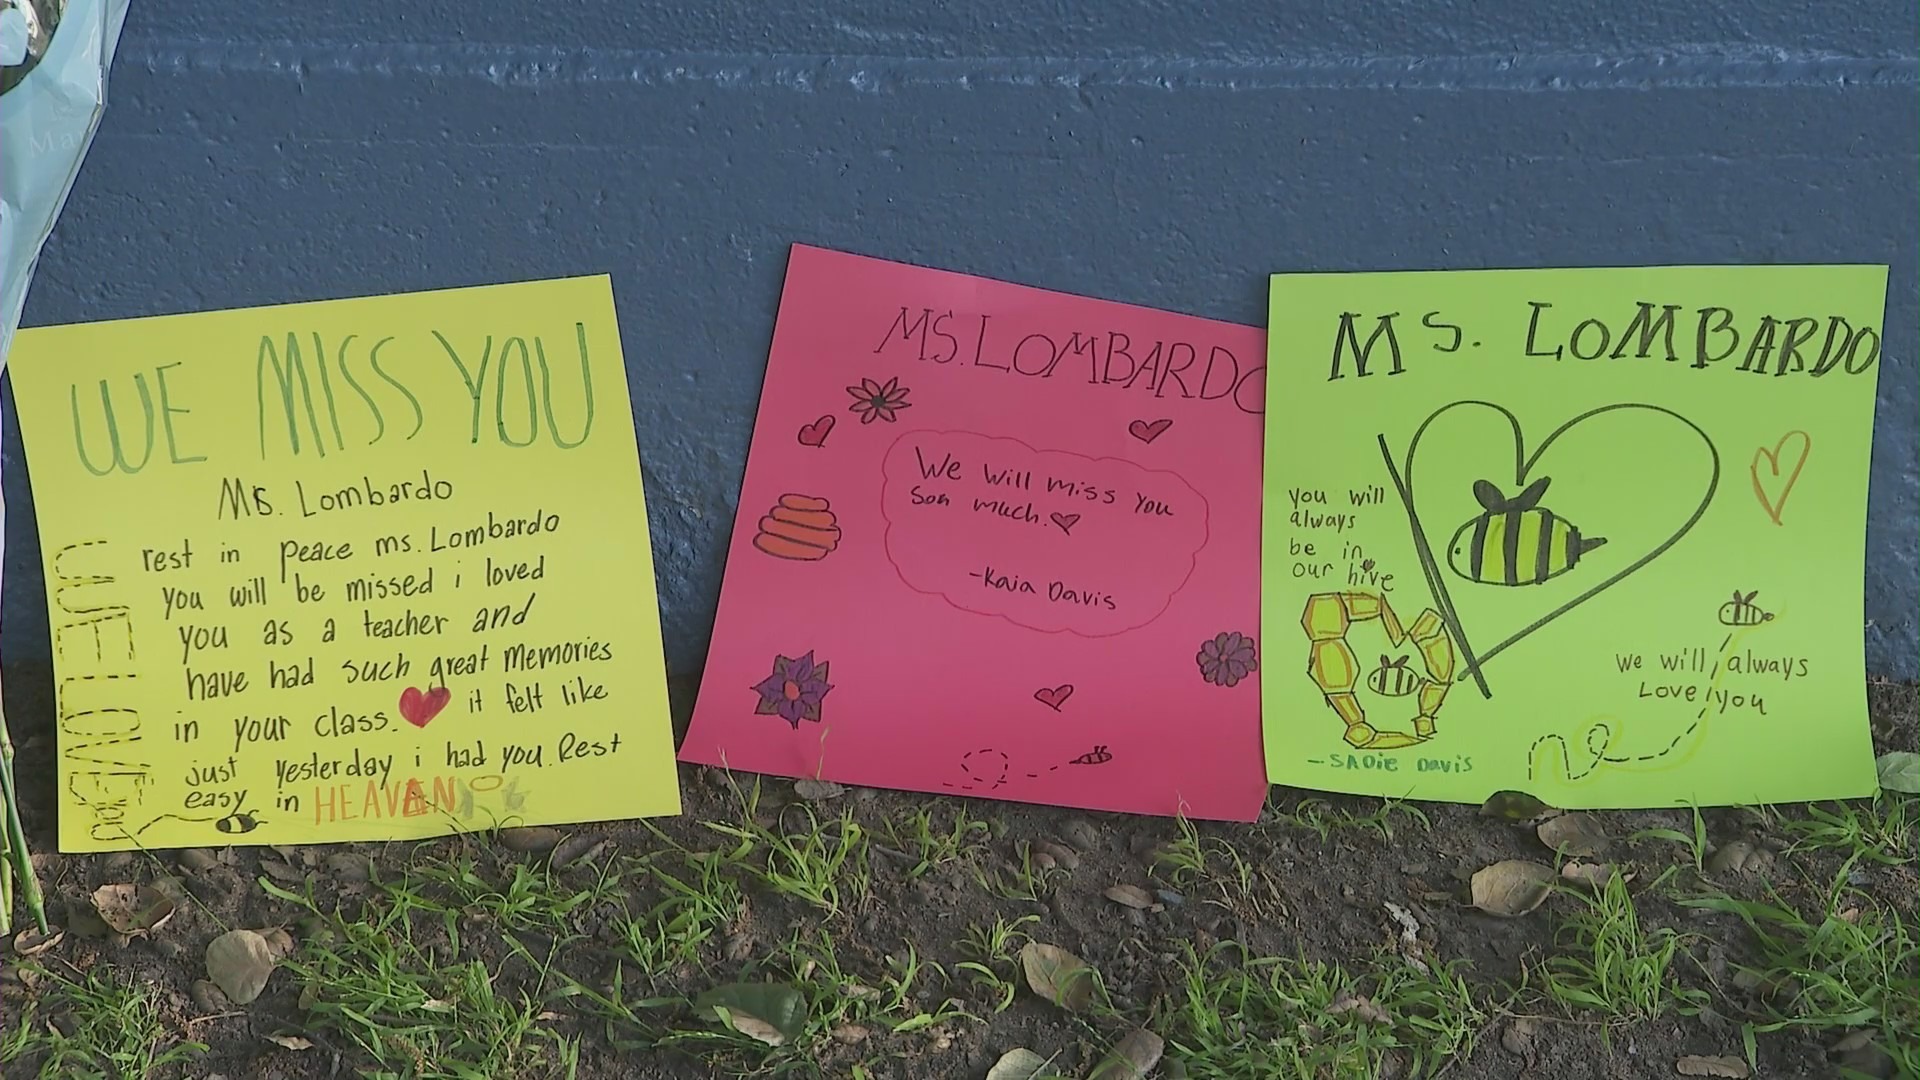 Ma
WE MISS YOU
Ms. Lombardo
rest in peace ms. Lombardo
you will be missed i loved
you as a teacher and
have had such great memories
in your class. it felt like
just yesterday i had you. Rest
easy in HEAVAN
WE LOVE YOU
MS. LOMBARDO
We will miss you
Son much.
-Kaia Davis
MS. LOMBARDO
you will
always
be in
our hive
-SADie DAVIS
we will always
Love you